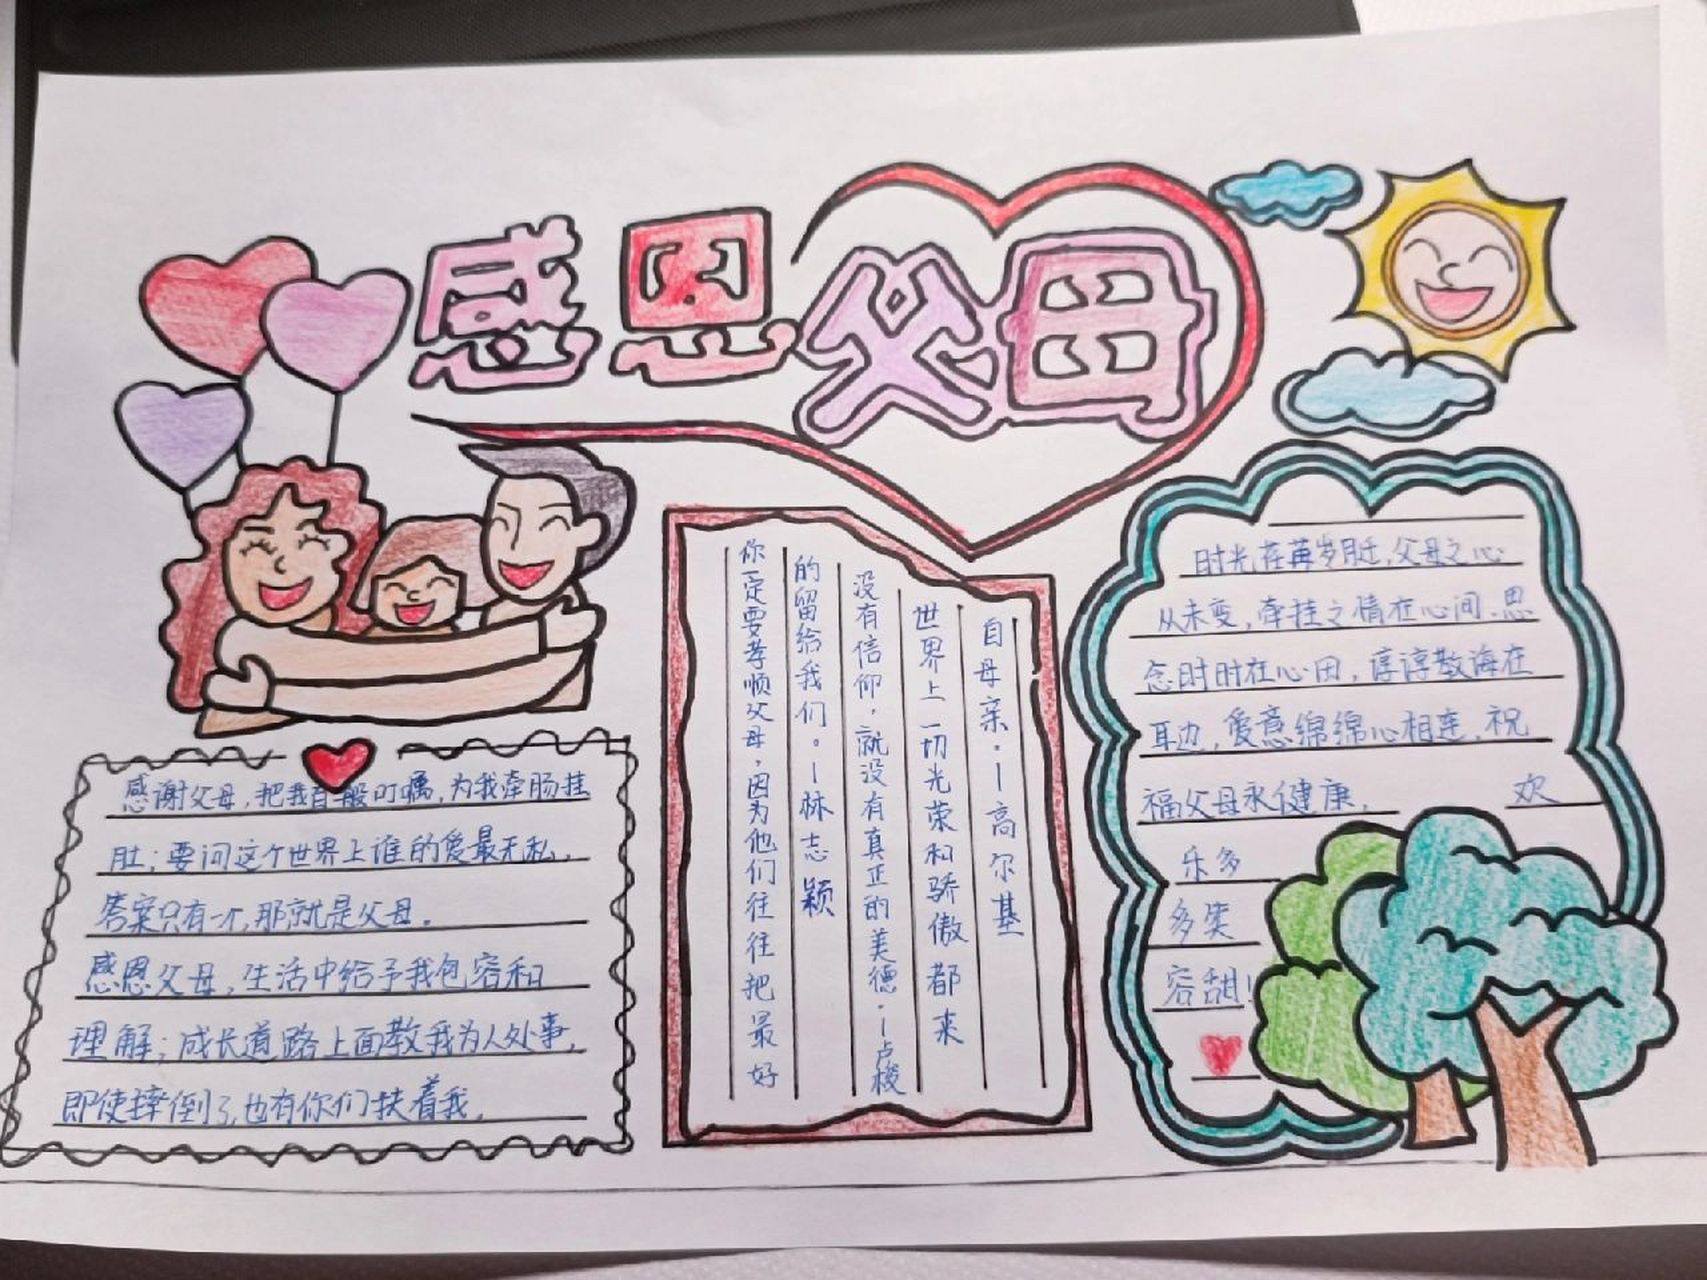 感恩父母
感谢父母,把我百般叮嘱,为我牵肠挂
肚;要问这个世界上谁的爱最无私,
答案只有一个,那就是父母.
感恩父母,生活中给予我包容和
理解;成长道路上面教我为人处事,
即使摔倒了,也有你们扶着我.
你一定要孝顺父母,因为他们往往把最好
的留给我们。—林志颖
没有信仰,就没有真正的美德.—卢梭
世界上一切光荣和骄傲都来
自母亲.—高尔基
时光在苒岁月迁,父母之心
从未变,牵挂之情在心间.思
念时时在心田,谆谆教诲在
耳边,爱意绵绵心相连,祝
福父母永健康, 欢
乐多
多笑
容甜!